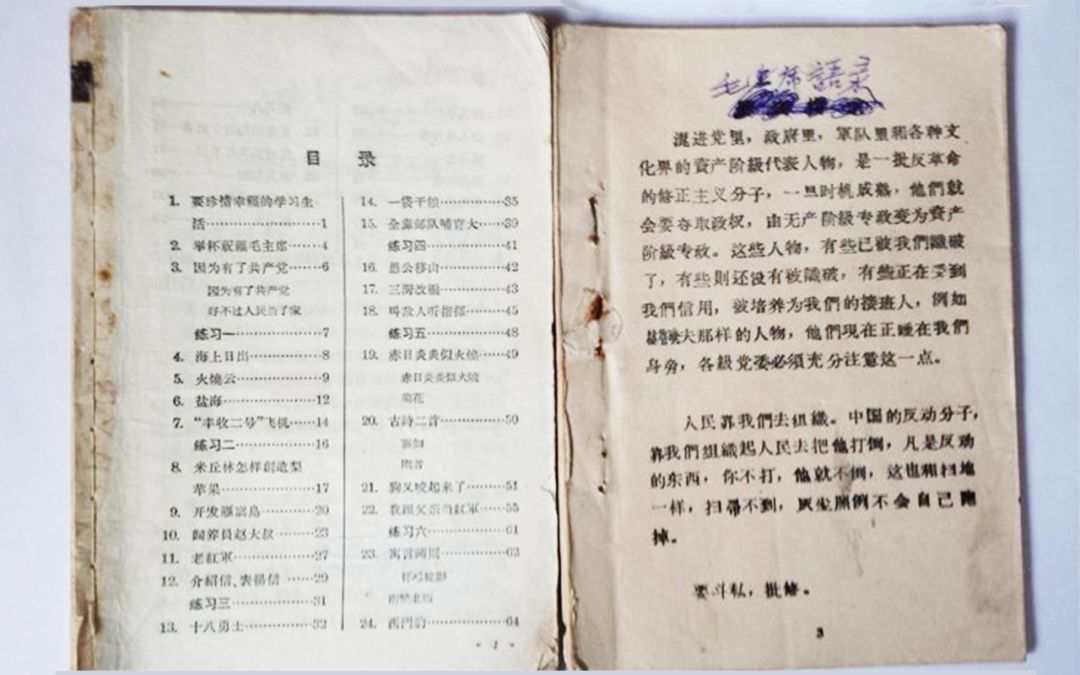 目 录
1. 要珍惜幸福的学习生
活……………1
2. 举杯祝福毛主席……4
3. 因为有了共产党……6
因为有了共产党
好不过人民当了家
练习一……………7
4. 海上日出……………8
5. 火燒云……………9
6. 盐海……………12
7. “丰收二号”飞机……14
练习二……………16
8. 米丘林怎样創造梨
苹果……………17
9. 开发……島……20
10. 飼养員赵大叔……23
11. 老紅軍……………27
12. 介紹信、表揚信……29
练习三……………31
13. 十八勇士……………32
14. 一袋干粮……………35
15. 全……部队哺育大……39
练习四……………41
16. 愚公移山……………42
17. 三灣改編……………43
18. 叫敌人听指揮……45
练习五……………48
19. 赤日炎炎似火燒……49
赤日炎炎似火燒
20. 古詩二首……………50
21. 狗又咬起来了……51
22. 我跟父亲当紅軍……55
练习六……………61
23. 寓言两則……………62
24. 西門豹……………64
· 1 ·
毛主席語录
混进党里，政府里，軍队里和各种文
化界的資产阶級代表人物，是一批反革命
的修正主义分子，一旦时机成熟，他們就
会要夺取政权，由无产阶級专政变为資产
阶級专政。这些人物，有些已被我們識破
了，有些則还沒有被識破，有些正在受到
我們信用，被培养为我們的接班人，例如
赫魯曉夫那样的人物，他們現在正睡在我們
身旁，各級党委必須充分注意这一点。
人民靠我們去組織。中国的反动分子，
靠我們組織起人民去把他打倒，凡是反动
的东西，你不打，他就不倒，这也和扫地
一样，扫帚不到，灰尘照例不会自己跑
掉。
要斗私，批修。
3